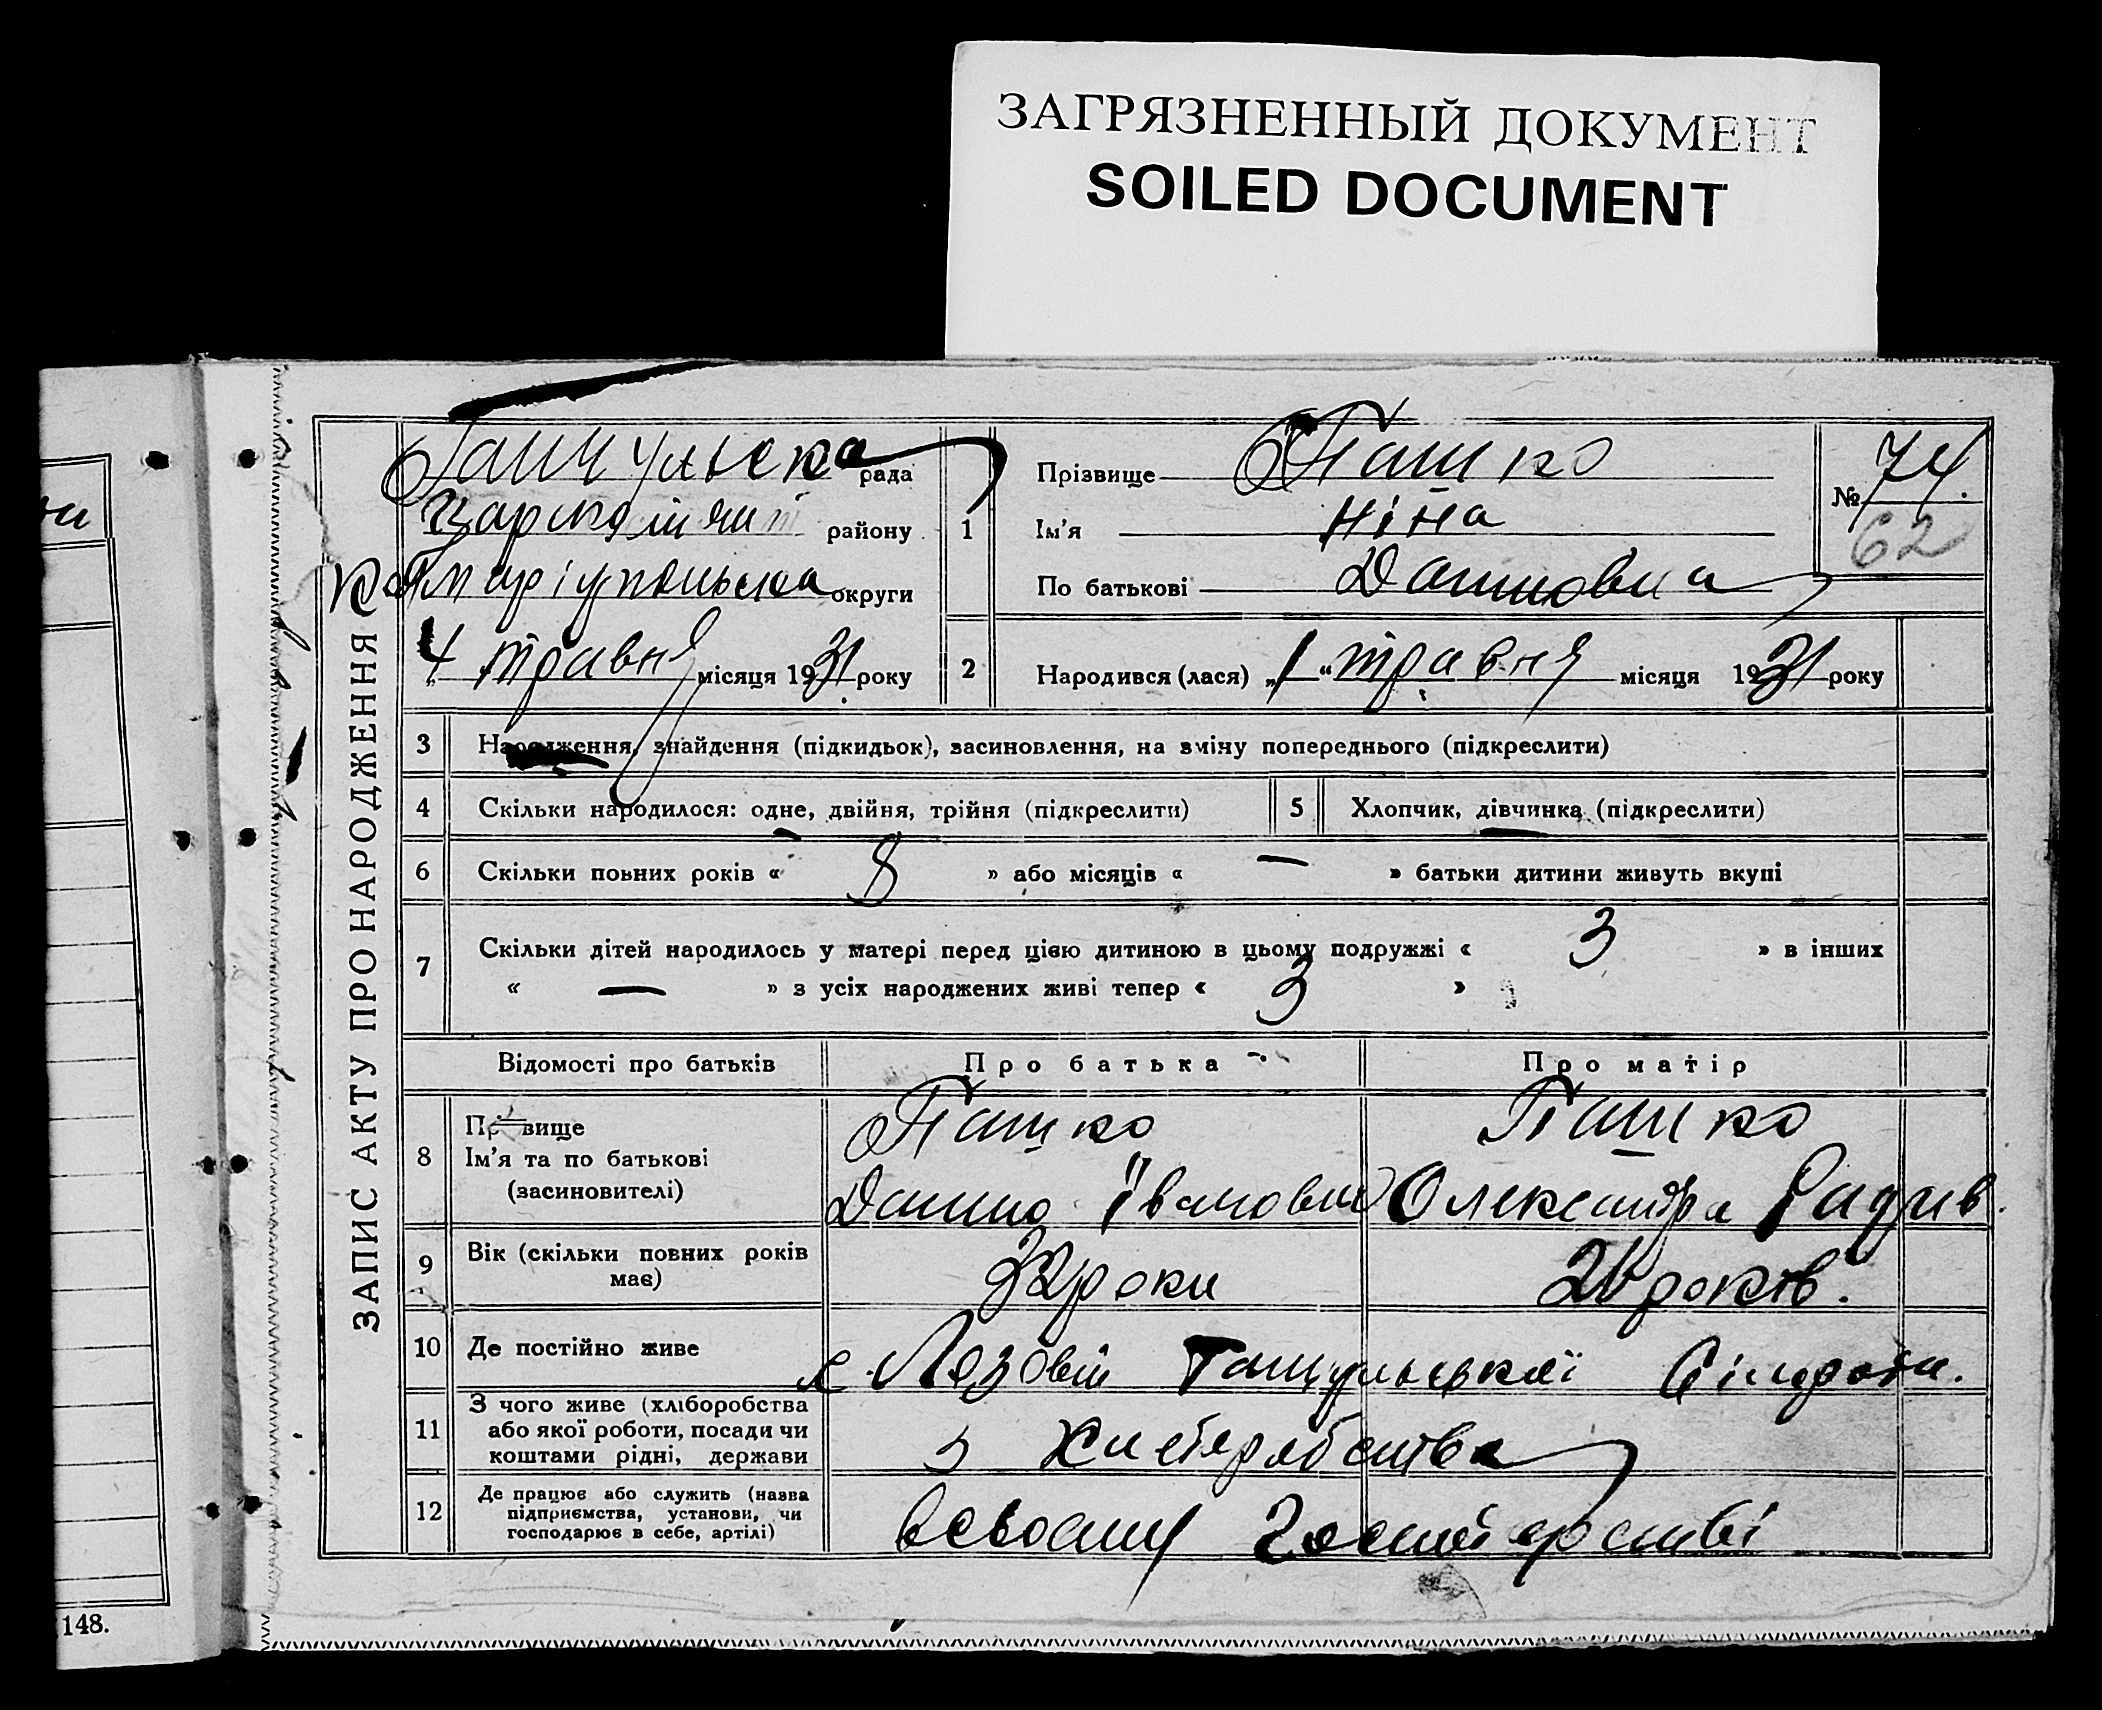 ЗАГРЯЗНЕННЫЙ ДОКУМЕНТ
SOILED DOCUMENT
ЗАПИС АКТУ ПРО НАРОДЖЕННЯ
рада
району
Маріупольська округи
„4 травня місяця 1931 року
1
Прізвище Пашко
Ім'я Ніна
По батькові Даниловна
№ 74.
62
2
Народився (лася) „1“ травня місяця 1931 року
3 Народження, знайдення (підкидьок), засиновлення, на зміну попереднього (підкреслити)
4 Скільки народилося: одне, двійня, трійня (підкреслити)
5 Хлопчик, дівчинка (підкреслити)
6 Скільки повних років « 8 » або місяців « — » батьки дитини живуть вкупі
7 Скільки дітей народилось у матері перед цією дитиною в цьому подружжі « 3 » в інших
« — » з усіх народжених живі тепер « 3 »
Відомості про батьків Про батька Про матір
8 Прізвище Пашко Пашко
Ім'я та по батькові
(засиновителі) Данило Іванович Олександра
9 Вік (скільки повних років має) 32 роки років.
10 Де постійно живе с. Лозовій
11 З чого живе (хліборобства
або якої роботи, посади чи
коштами рідні, держави
з Хлеборобства
12 Де працює або служить (назва
підприємства, установи, чи
господарює в себе, артілі)
148.